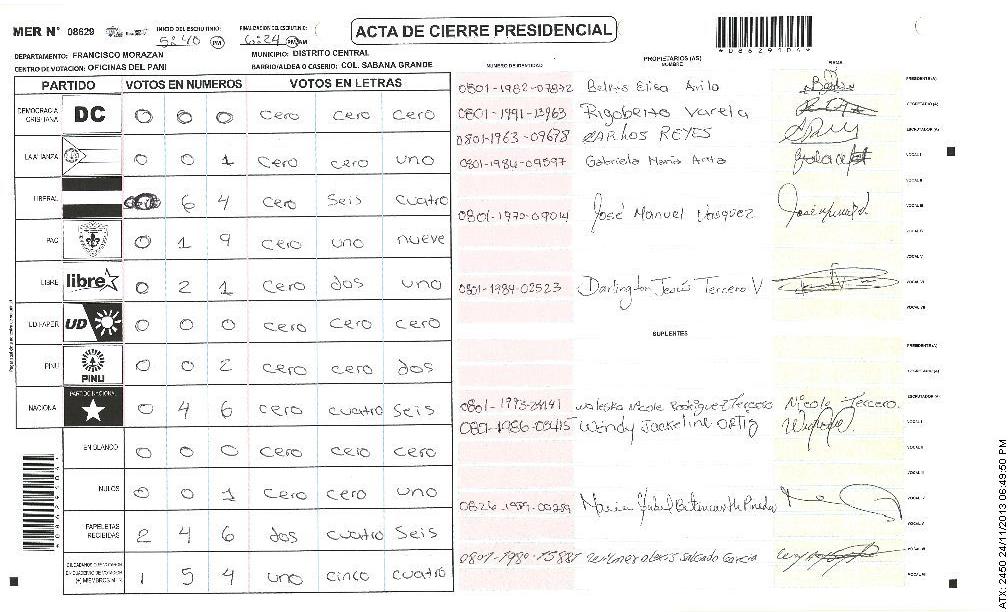 MER N° 08629 INICIO DEL ESCRUTINIO: 5:40 PM FINALIZACION DEL ESCRUTINIO: 6:24 PM AM
ACTA DE CIERRE PRESIDENCIAL
*08629104*
DEPARTAMENTO: FRANCISCO MORAZAN MUNICIPIO: DISTRITO CENTRAL
CENTRO DE VOTACION: OFICINAS DEL PANI BARRIO/ALDEA O CASERIO: COL. SABANA GRANDE
PARTIDO VOTOS EN NUMEROS VOTOS EN LETRAS
DEMOCRACIA CRISTIANA DC 0 0 0 cero cero cero
LA ALIANZA 0 0 1 cero cero uno
LIBERAL 6 4 cero seis cuatro
PAC 0 1 9 cero uno nueve
LIBRE libre 0 2 1 cero dos uno
UD FAPER UD 0 0 0 cero cero cero
PINU PINU 0 0 2 cero cero dos
NACIONA PARTIDO NACIONAL 0 4 6 cero cuatro seis
EN BLANCO 0 0 0 cero cero cero
NULOS 0 0 1 cero cero uno
PAPELETAS RECIBIDAS 2 4 6 dos cuatro seis
1 5 4 uno cinco cuatro
NUMERO DE IDENTIDAD PROPIETARIOS (AS) NOMBRE FIRMA
Belkis Elisa Avila PRESIDENTE(A)
0801-1991-13963 Rigoberto Varela SECRETARIO (A)
0801-1963-09678 CARLOS REYES ESCRUTADOR (A)
0801-1984-09597 Gabriela Maria VOCAL I
VOCAL II
0801-1972-09014 José Manuel Vasquez VOCAL III
VOCAL IV
VOCAL V
0801-1984-02523 Darlington Jesús Tercero V VOCAL VI
VOCAL VII
SUPLENTES
PRESIDENTE(A)
SECRETARIO (A)
Waleska Nicole Rodriguez Tercero Nicole Tercero. ESCRUTADOR (A)
0801-1986-05415 Wendy Jackeline ORTIZ VOCAL I
VOCAL II
VOCAL III
Maria Pineda VOCAL IV
VOCAL V
Salgado Garcia VOCAL VI
VOCAL VII
ATX: 2450 24/11/2013 06:49:50 PM